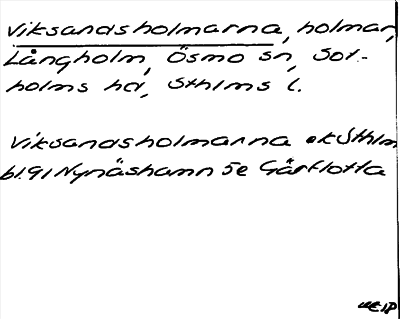 Viksandsholmarna, holmar,
Långholm, Ösmo sn, Sot-
holms hd, Sthlms l.
Viksandsholmarna ek Sthlm
bl. 91 Nynäshamn 5e Gårflotta